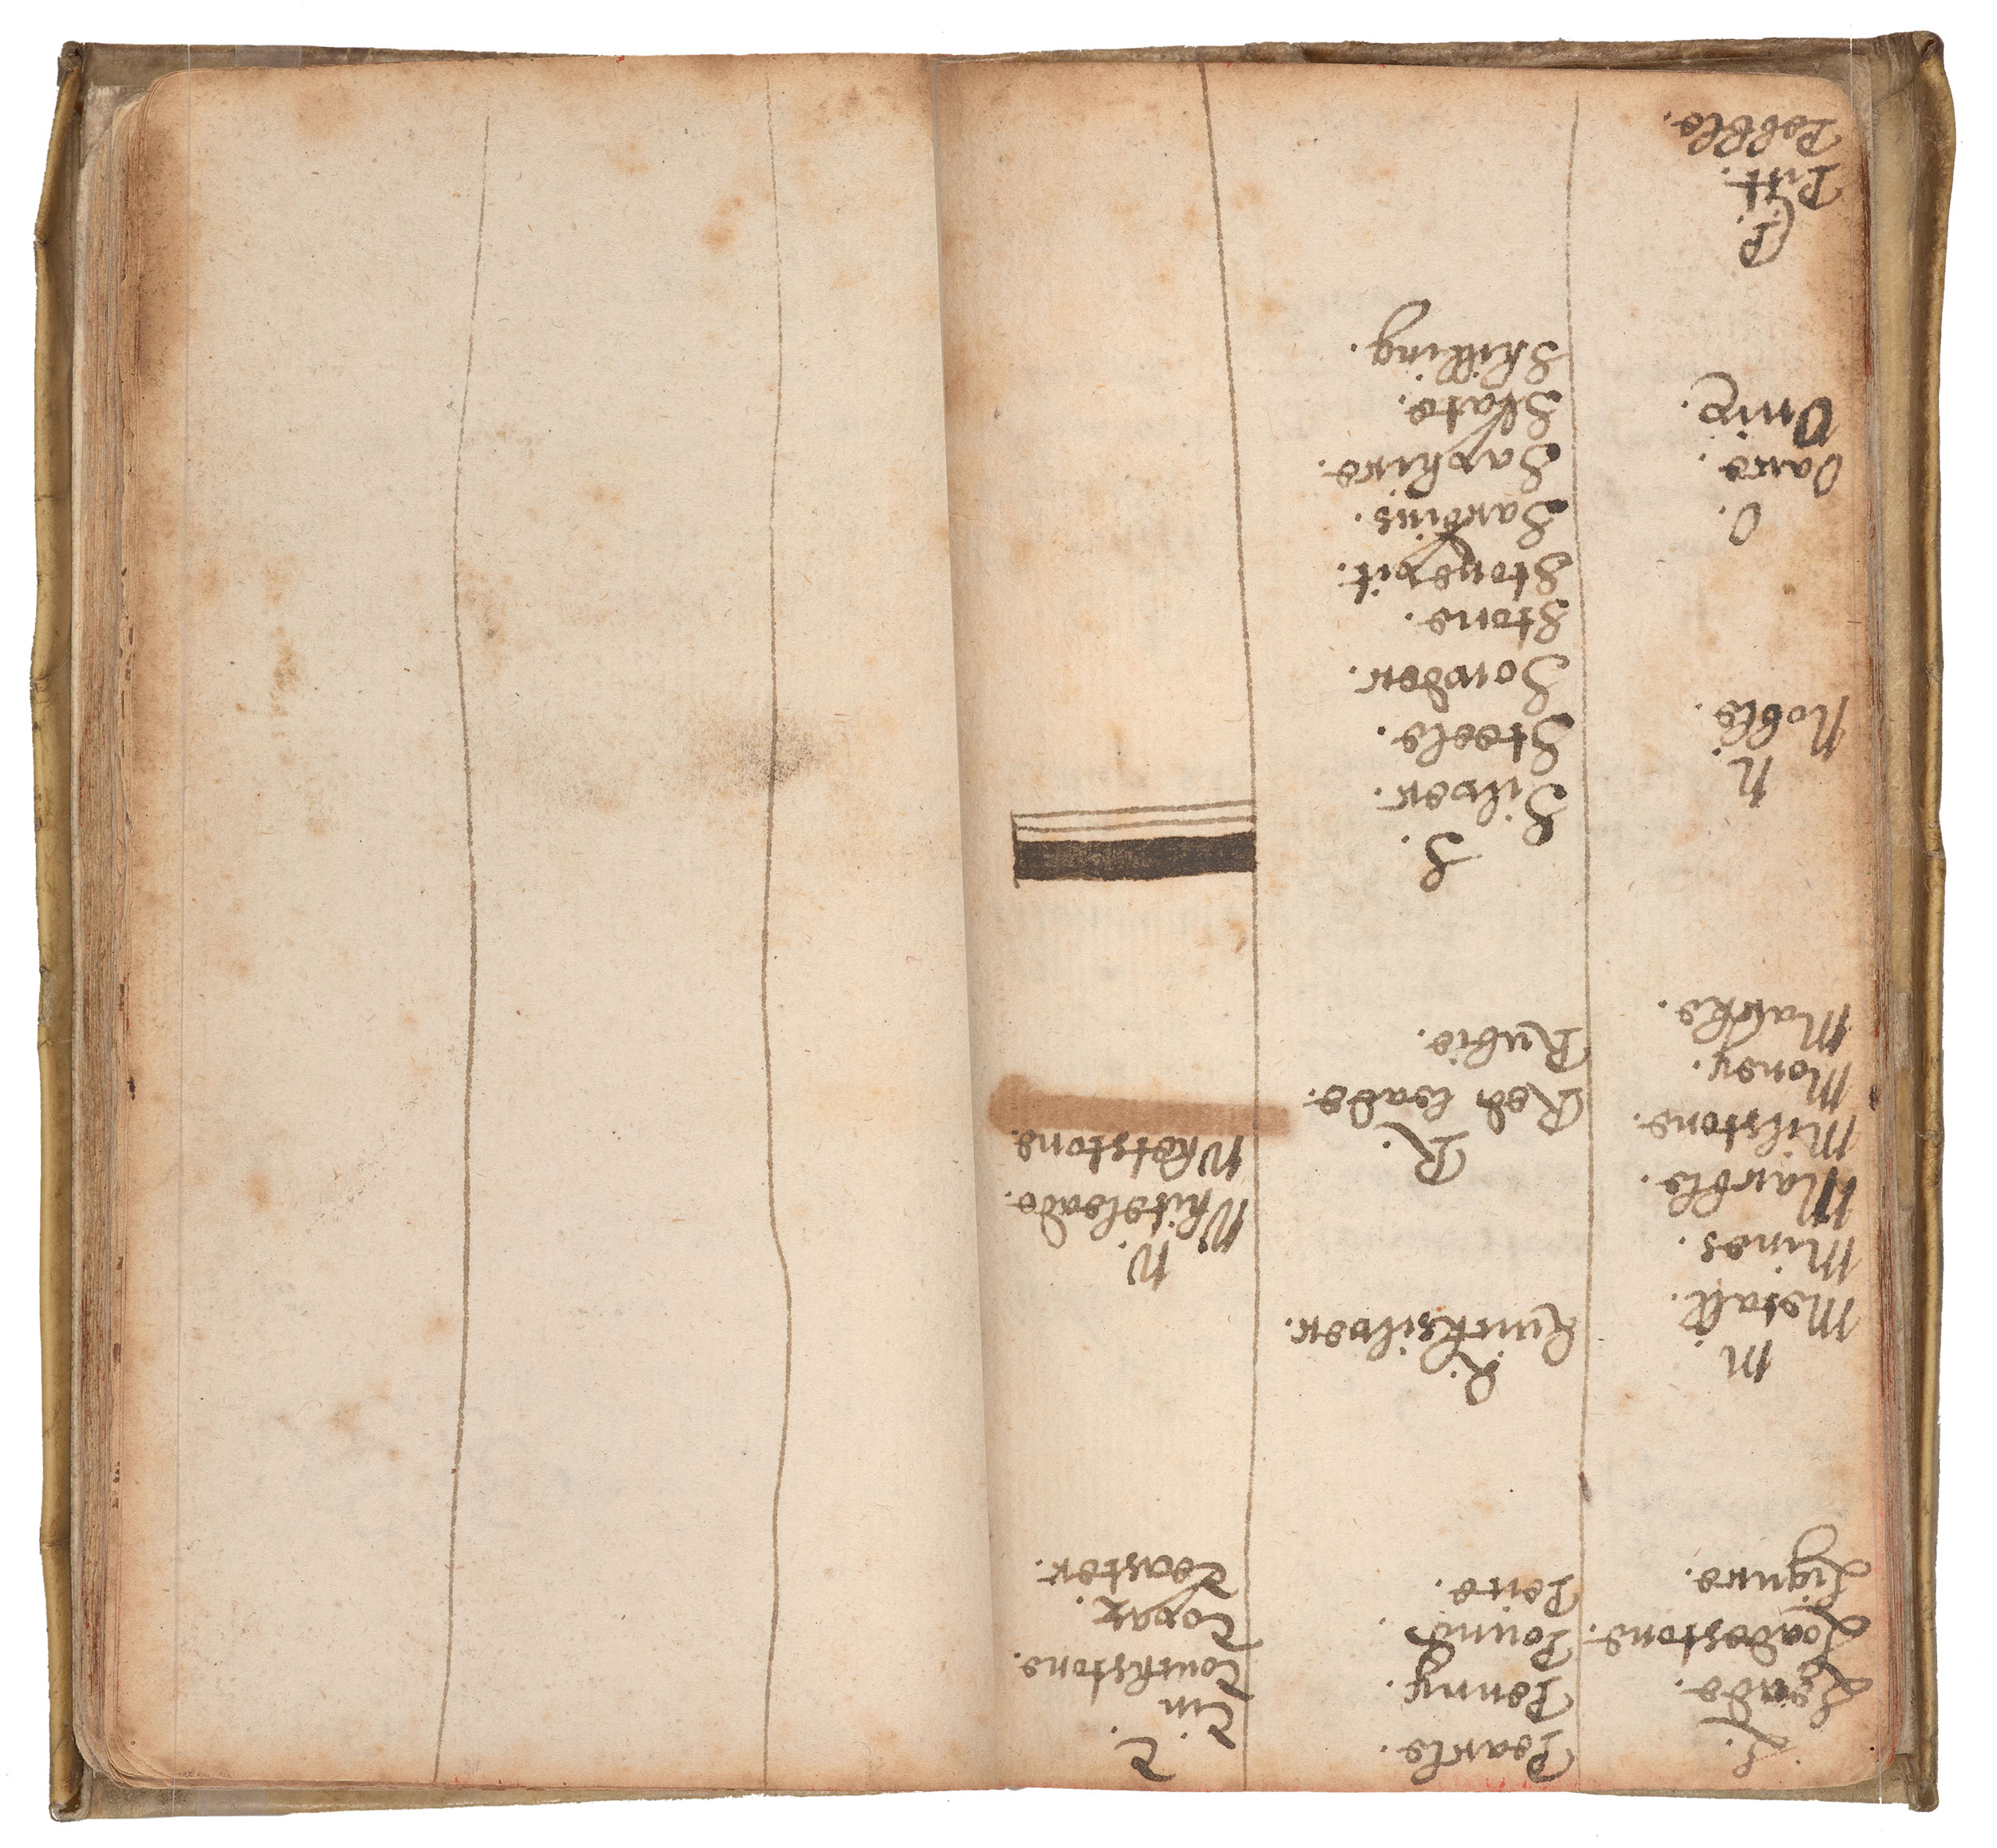 L.
Leade.
Loadestone.
Ligure.
M
Metall.
Mines.
Marble.
Milstone.
Money.
Marke.
N.
Noble.
O.
Oare.
Onix.
P.
Pitt.
Pebble.
Pearle.
Penny.
Pound.
Pence.
Q.
Quicksilver.
R.
Red leade.
Rubie.
S.
Silver.
Steele.
Sowder.
Stone.
Stonepit.
Sardius.
Saphire.
Slate.
Shilling.
T.
Tin
Touchstone.
Topaz.
Teaster.
W.
Whiteleade.
Whetstone.